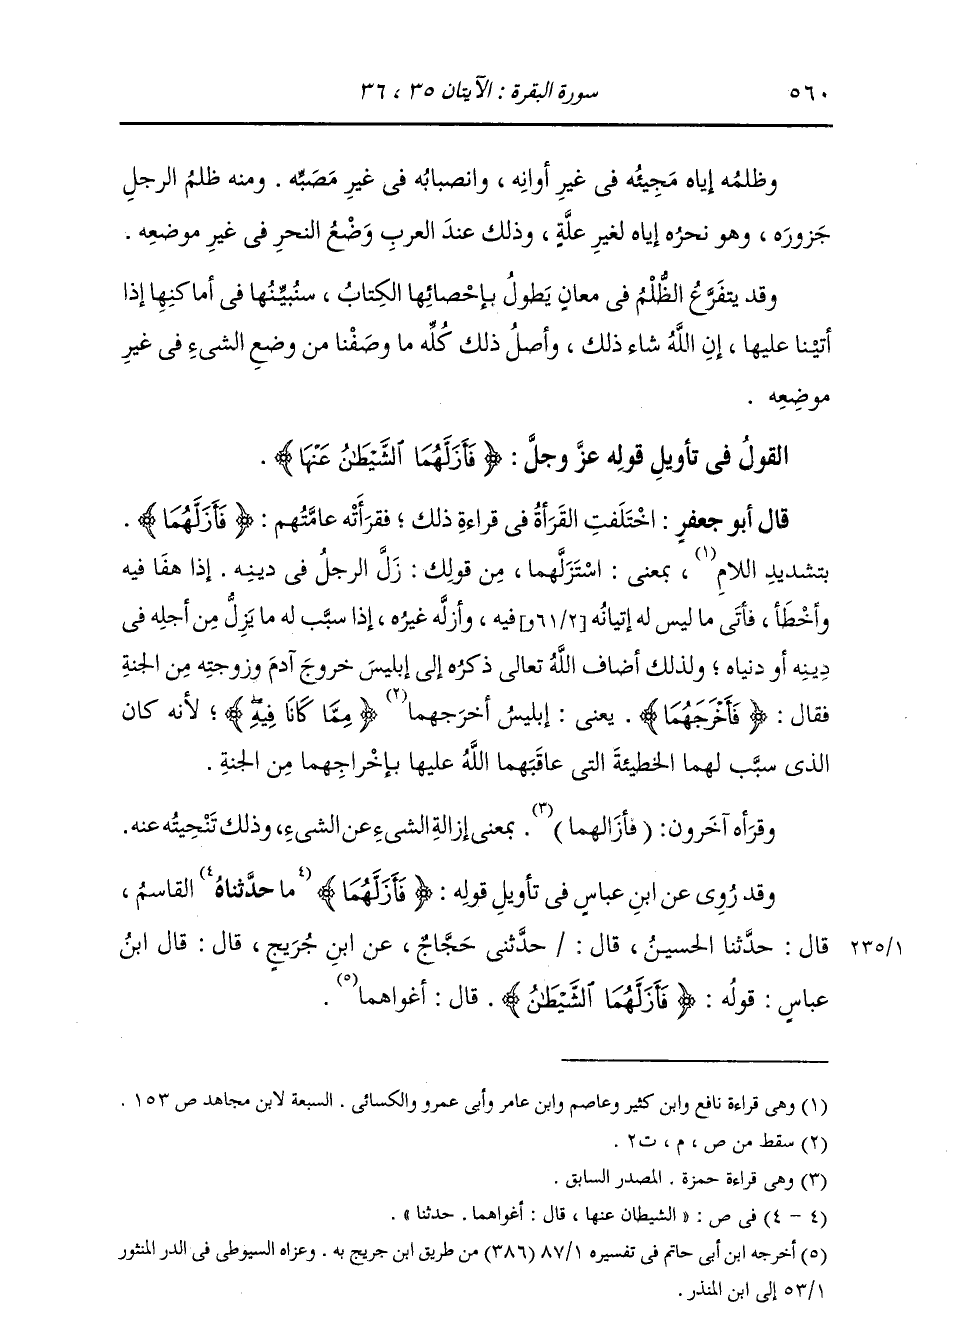 ٥٦٠ سورة البقرة : الآيتان ٣٥ ، ٣٦
وظلمُه إياه مَجِيئُه فى غيرِ أوانِه ، وانصبابُه فى غيرِ مَصَبِّه . ومنه ظلمُ الرجلِ
جَزورَه ، وهو نحرُه إياه لغيرِ علَّةٍ ، وذلك عندَ العربِ وَضْعُ النحرِ فى غيرِ موضعِه .
وقد يتفَرَّعُ الظُّلْمُ فى معانٍ يَطولُ بإحْصائِها الكِتابُ ، سنُبيِّنُها فى أماكنِها إذا
أتيْنا عليها ، إنِ اللَّهُ شاء ذلك ، وأصلُ ذلك كُلِّه ما وصَفْنا من وضعِ الشىءِ فى غيرِ
موضِعِه .
القولُ فى تأويلِ قولِه عزَّ وجلَّ : ﴿ فَأَزَلَّهُمَا ٱلشَّيْطَٰنُ عَنْهَا ﴾ .
قال أبو جعفرٍ : اخْتَلَفتِ القَرَأةُ فى قراءةِ ذلك ؛ فقرَأَتْه عامَّتُهم : ﴿ فَأَزَلَّهُمَا ﴾ .
بتشديدِ اللامِ(١) ، بمعنى : اسْتَزَلَّهما ، مِن قولِك : زَلَّ الرجلُ فى دينِه . إذا هفَا فيه
وأخْطَأ ، فأتَى ما ليس له إتيانُه [٦١/٢و] فيه ، وأزلَّه غيرُه ، إذا سبَّب له ما يَزِلُّ مِن أجلِه فى
دِينِه أو دنياه ؛ ولذلك أضاف اللَّهُ تعالى ذكرُه إلى إبليسَ خروجَ آدمَ وزوجتِه مِن الجنةِ
فقال : ﴿ فَأَخْرَجَهُمَا ﴾ . يعنى : إبليسُ أخرَجهما(٢) ﴿ مِمَّا كَانَا فِيهِۖ ﴾ ؛ لأنه كان
الذى سبَّب لهما الخطيئةَ التى عاقَبَهما اللَّهُ عليها بإخْراجِهما مِن الجنةِ .
وقرَأه آخَرون : ( فأزَالهما )(٣) . بمعنى إزالةِ الشىءِ عن الشىءِ، وذلك تَنْحِيتُه عنه .
وقد رُوِى عن ابنِ عباسٍ فى تأويلِ قولِه : ﴿ فَأَزَلَّهُمَا ﴾ (٤ما حدَّثناهُ٤) القاسمُ ،
٢٣٥/١ قال : حدَّثنا الحسينُ ، قال : / حدَّثنى حَجَّاجٌ ، عن ابنِ جُرَيجٍ ، قال : قال ابنُ
عباسٍ : قولُه : ﴿ فَأَزَلَّهُمَا ٱلشَّيْطَٰنُ ﴾ . قال : أغواهما(٥) .
(١) وهى قراءة نافع وابن كثير وعاصم وابن عامر وأبى عمرو والكسائى . السبعة لابن مجاهد ص ١٥٣ .
(٢) سقط من ص ، م ، ت٢ .
(٣) وهى قراءة حمزة . المصدر السابق .
(٤ - ٤) فى ص : « الشيطان عنها ، قال : أغواهما . حدثنا » .
(٥) أخرجه ابن أبى حاتم فى تفسيره ٨٧/١ (٣٨٦) من طريق ابن جريج به . وعزاه السيوطى فى الدر المنثور
٥٣/١ إلى ابن المنذر .